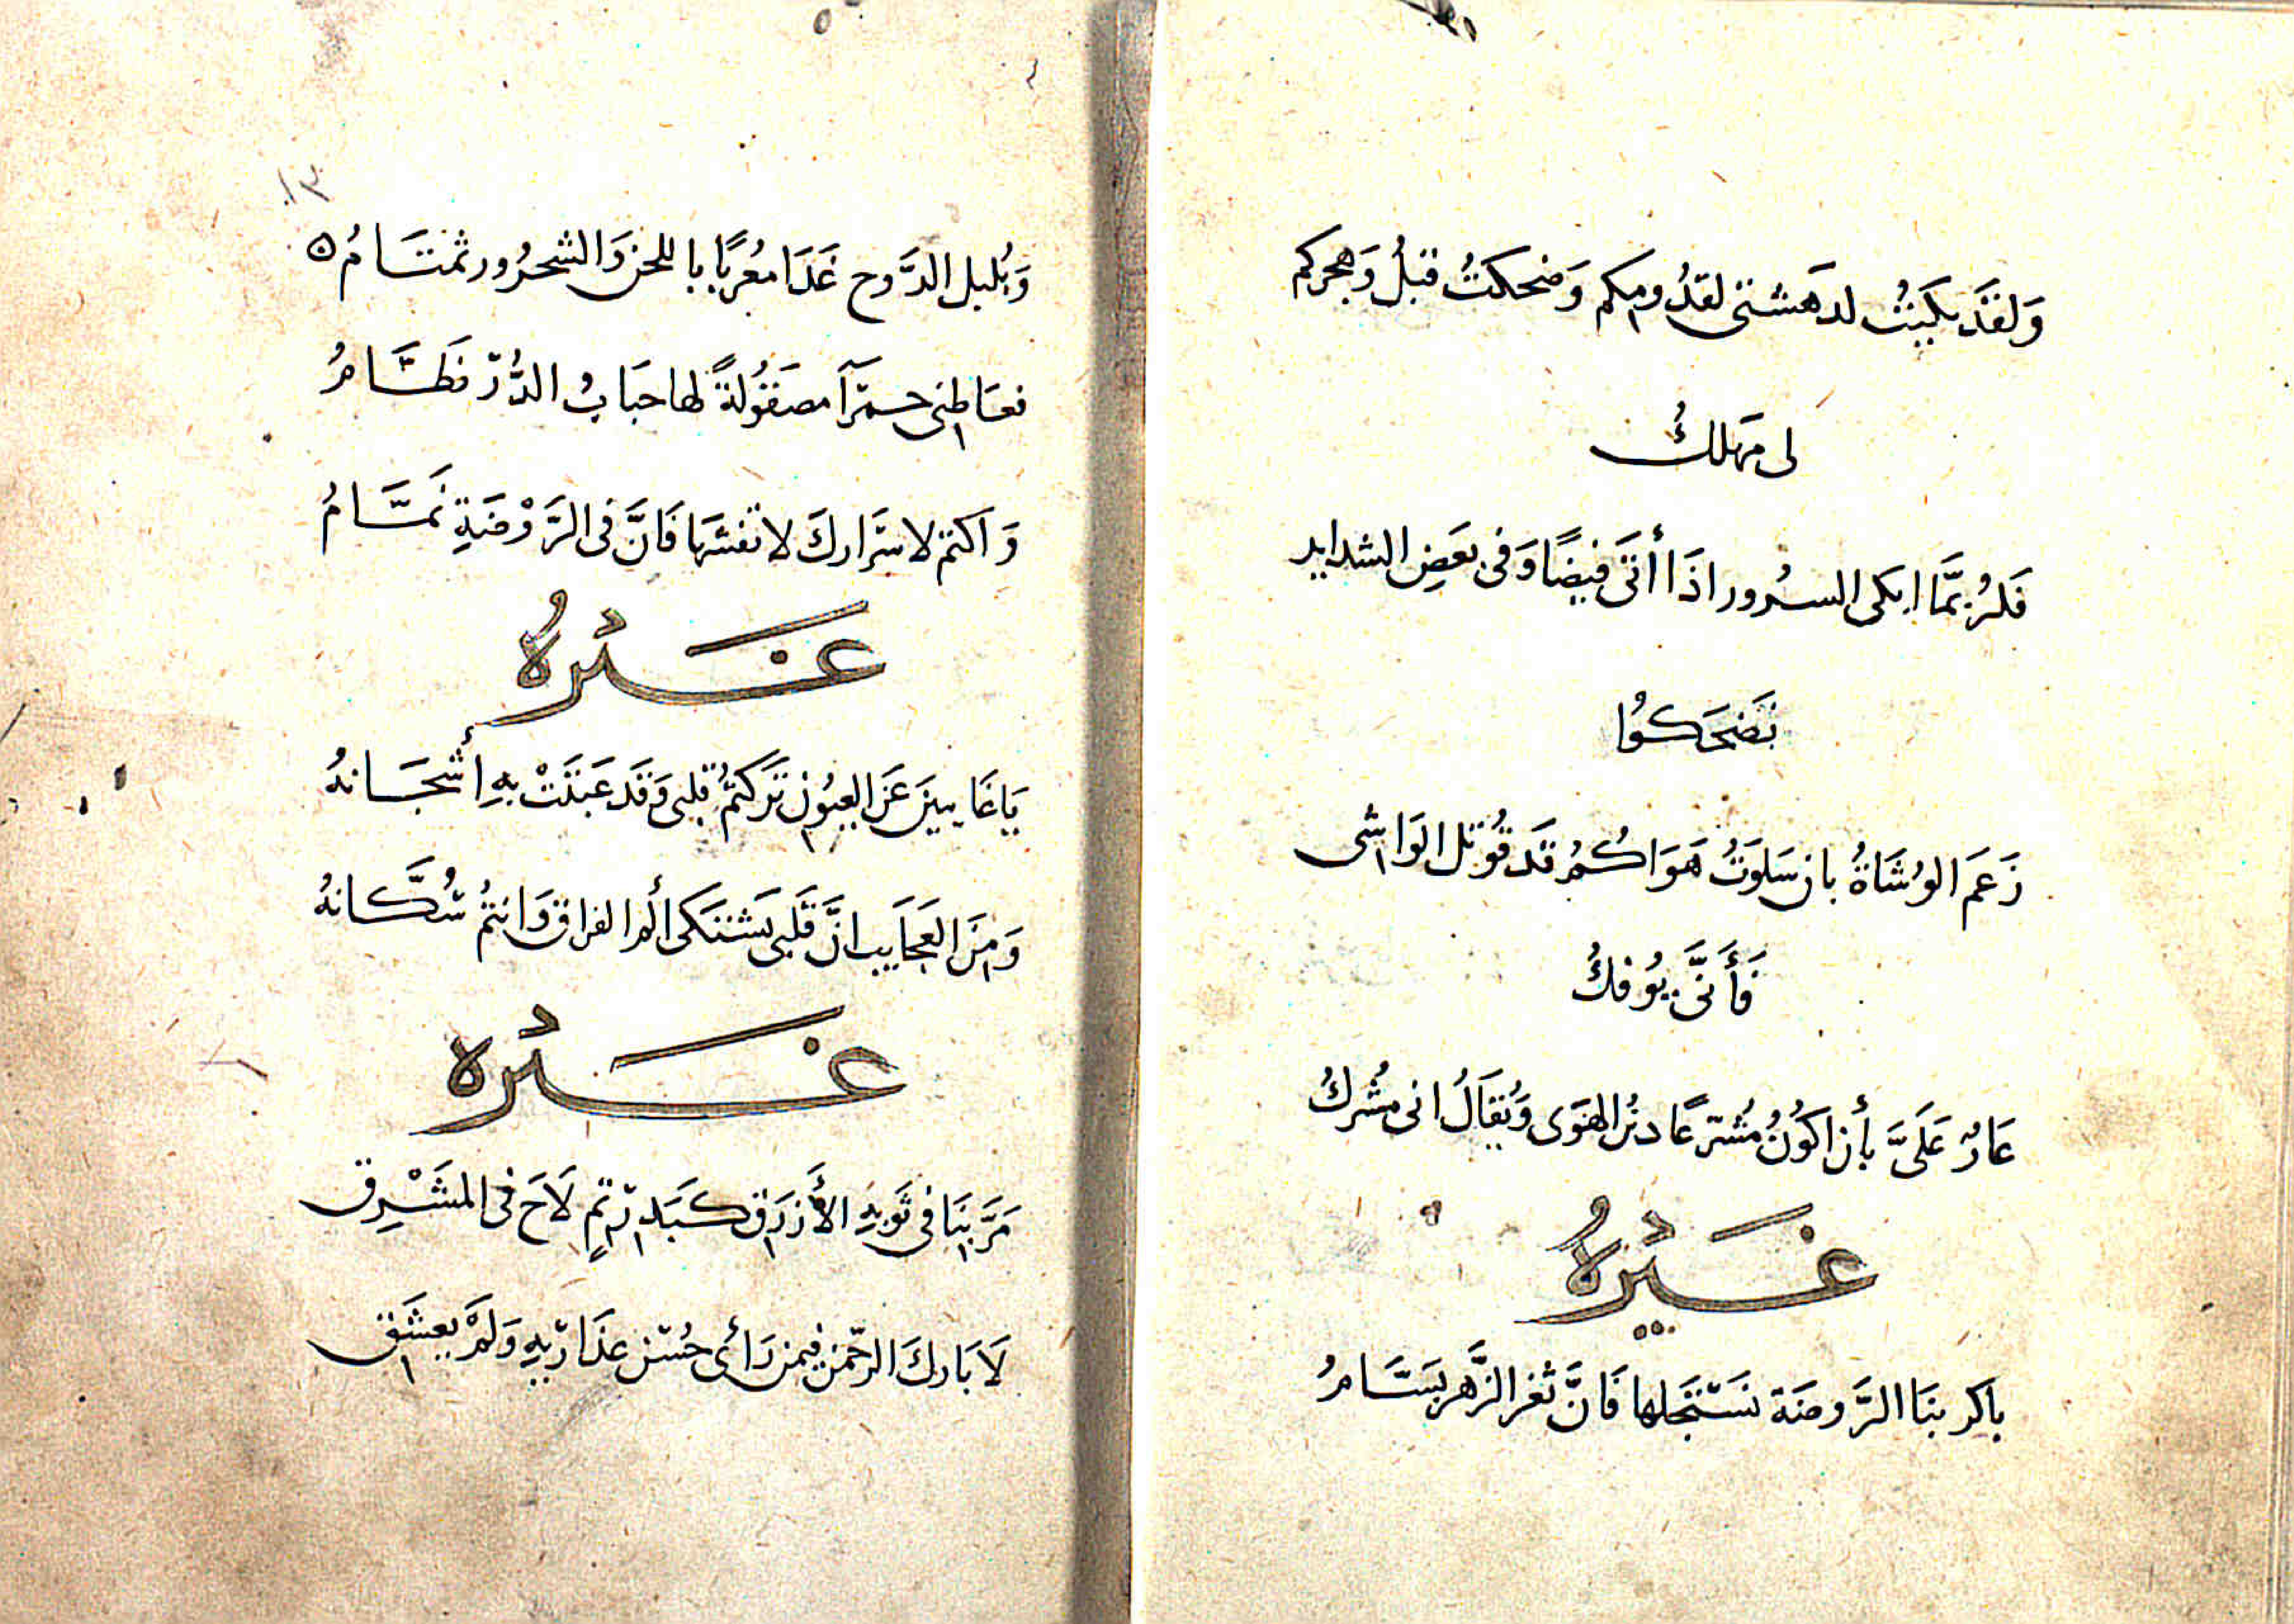 وَلقَد بكَيتُ لدهشتى لقدُومكم وَضحكتُ قبلُ وَهجركم
لى مَهلكُ
فَلرُبمَّا ابكى السرُور اذَا أتَى فيضًا وَفى بعَضِ الشدايد
تضَحَكوُا
زَعَمَ الوُشَاةُ بان سَلوَتُ هَوَاكُمُ قَد قُوتل الوَاشى
فَأَنَّى يوُفكُ
عَارٌ عَلَىَّ بأن اكوُنُ مُشرّعًا دينُ الهَوَى وَيُقَالُ انى مُشركُ
غَيْرهُ
باكر بنَا الرَّوضَة نسَتَجلها فَانَّ ثغر الزَّهر بسَّامرُ
١٣
وَبُلبل الدَّوح غَدَا معُربًا باللحن وَالشحرُور تمتَامُ ه
فعَاطِنى حمرَآ مصَقوُلةً لها حبَابُ الدُّرّ نظَّامرُ
وَاكتم لاسرَاركَ لا تفشهَا فَانَّ فى الرَّوْضَةِ نَمَّامُ
غَيْرهُ
يَاغَايبينَ عَن العيوُن تَركتمُ قلبى وَقَد عَبثَتْ بهِ أشجَانهُ
وَمِنَ العَجَايَب انَّ قَلبى يَشتكى ألم الفراق وَانتمُ سُكَّانهُ
غَيْره
مَرَّ بنَا فى ثَوَبهِ الأَزرَق كبَدرِ تمٍ لَاحَ فى المشَرْرِق
لَا بَاركَ الرحّمن فيمن رَأى حُسن عذَارَيهِ وَلمَ يعشَق